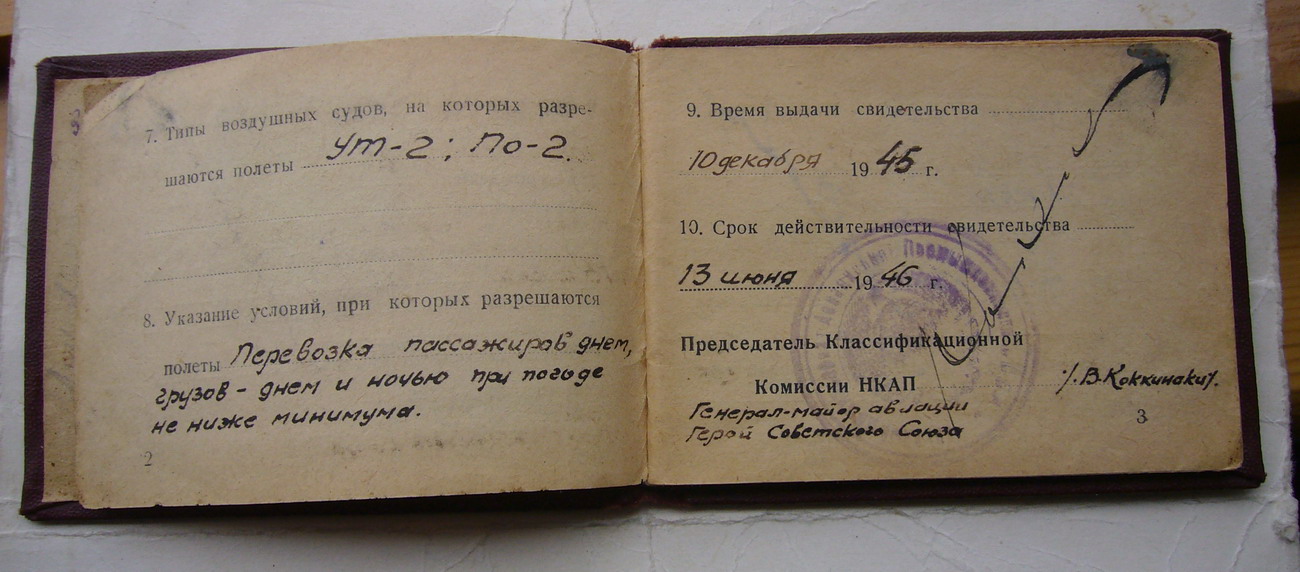 7. Типы воздушных судов, на которых разре-
шаются полеты УТ-2; По-2.
8. Указание условий, при которых разрешаются
полеты Перевозка пассажиров днем,
грузов - днем и ночью при погоде
не ниже минимума.
2
9. Время выдачи свидетельства
10 декабря 1945 г.
10. Срок действительности свидетельства
13 июня 1946 г.
Председатель Классификационной
Комиссии НКАП /В. Коккинаки/.
Генерал-майор авиации
Герой Советского Союза
3